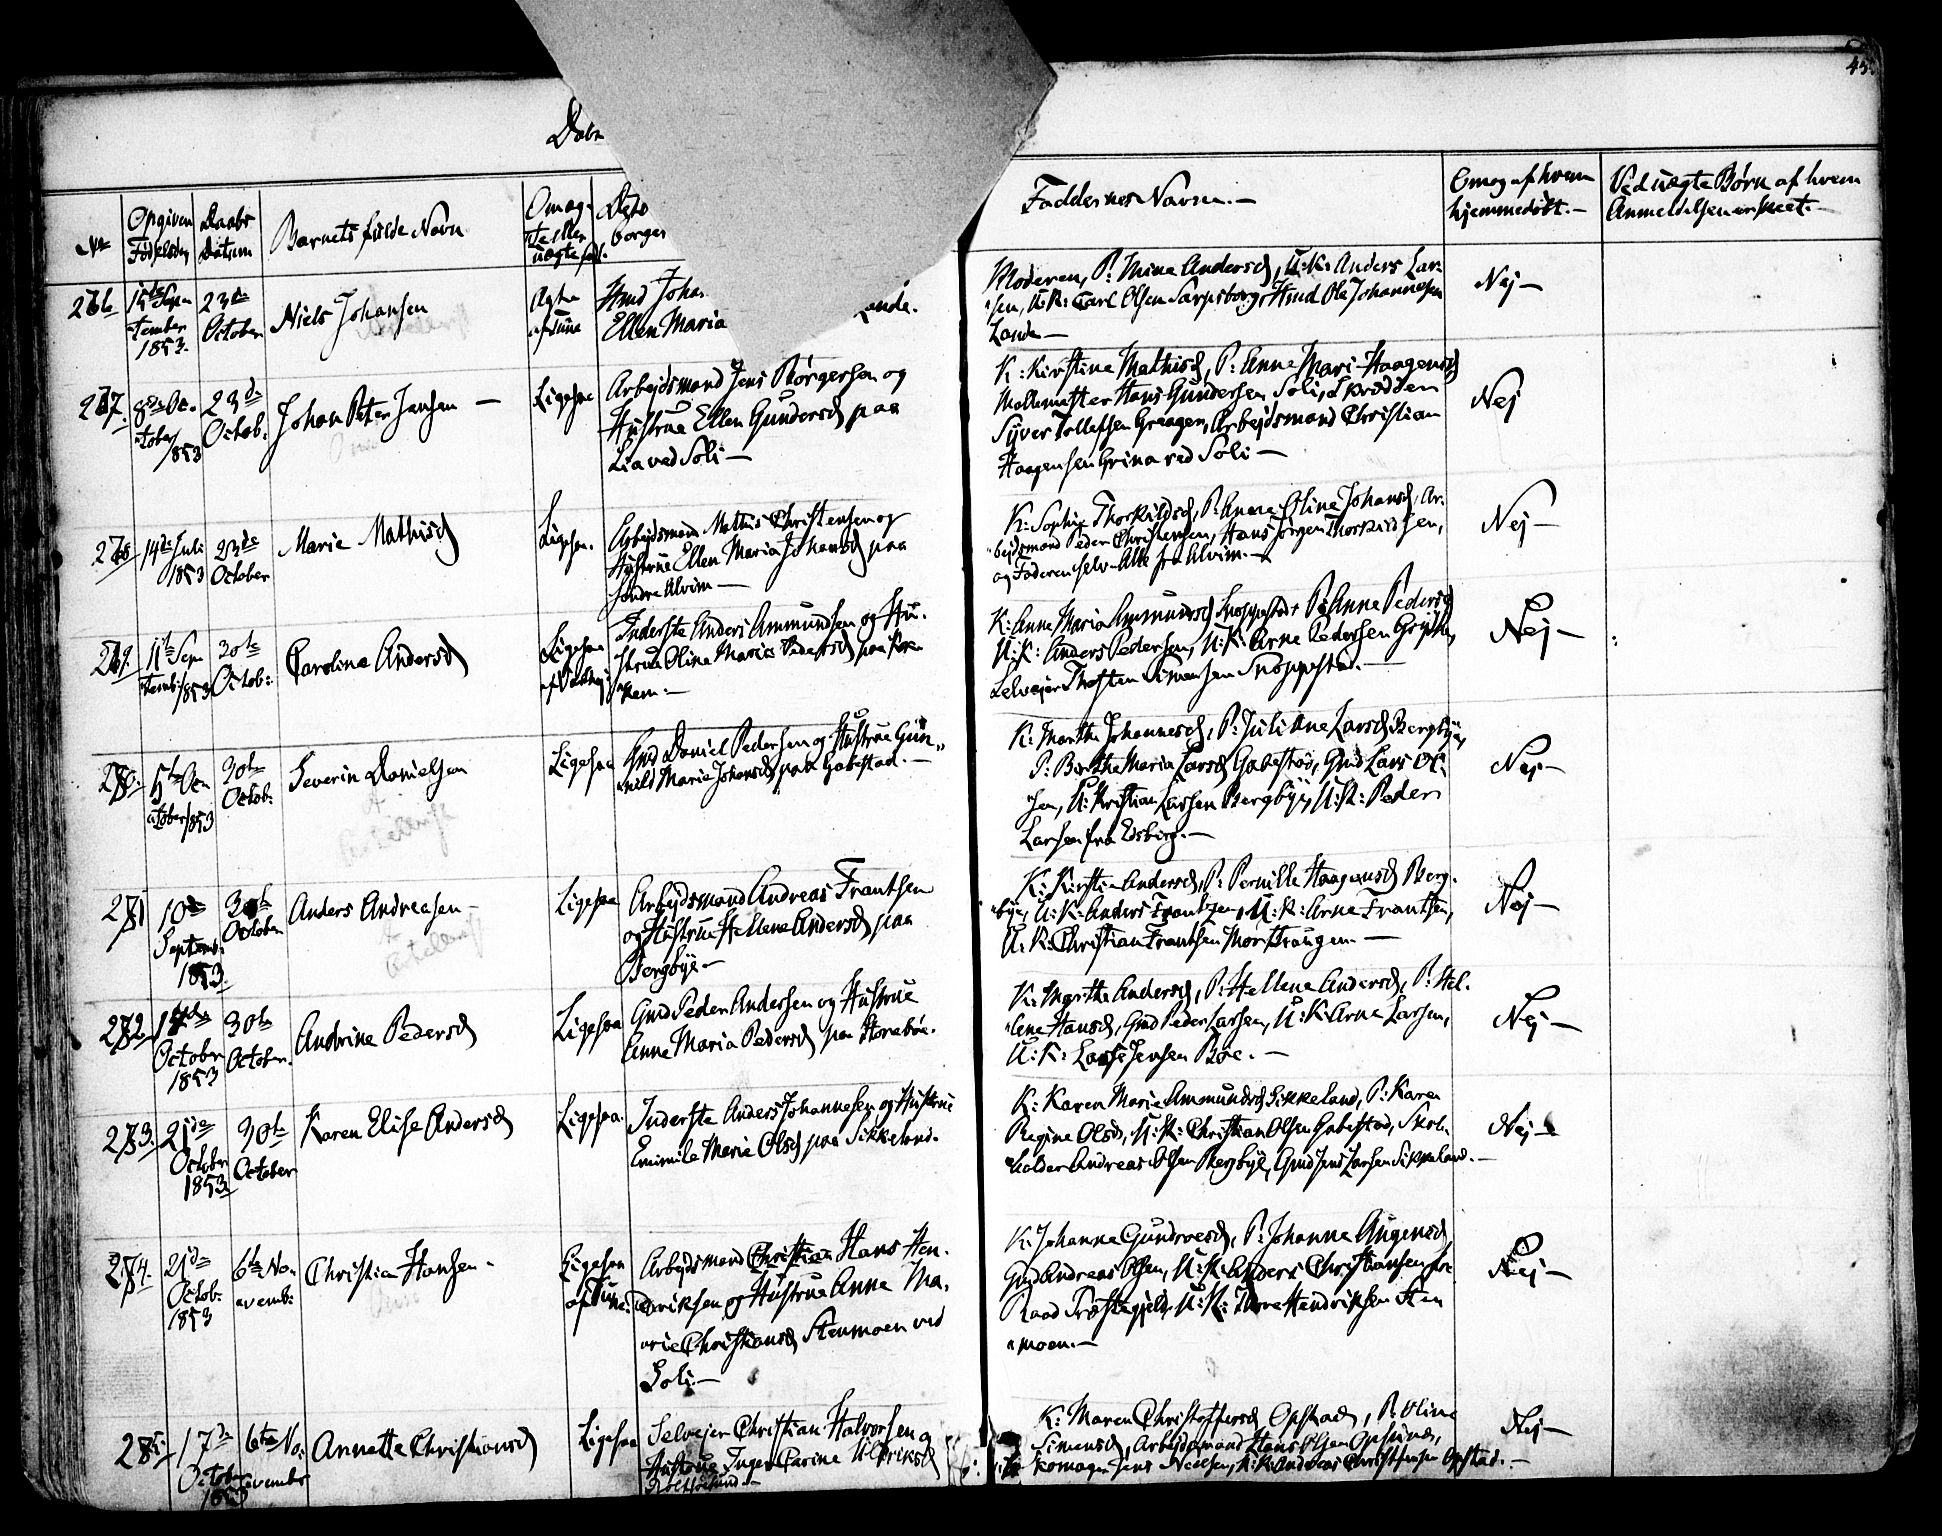 45.
Daab
No
Opgiven Fødselsdag
Daabs Datum
Barnets fulde Navn
Omæg- te eller uægte fød.
borger
Faddernes Navn.—
Om og af hvem hjemmedøbt.—
Ved uægte Børn af hvem Anmeldelsen er skeet.—
266
15de Sep-
tember
1853.
23de
October
Niels Johansen
Ægte
af Tune
Hmd Joha
Ellen Maria
Lande.
Moderen, P: Mina Andersd, U:K: Anders Lar-
sen, U:K: Carl Olsen Sarpsborg, Hmd Ole Johannesen
Lande—
Nej—
267.
8de Oc-
tober/
1853
23de
Octob:
Johan Peter Jensen —
Ligesaa
Arbejdsmand Jens Børgersen og
Hustrue Ellen Gundersd paa
Lia ved Soli—
K: Kirstine Mathisd, P: Anne Mari Haagensd
Møllemester Hans Gundersen Soli, Skrædder
Syver Tollefsen Greager, Arbejdsmand Christian
Haagensen Grina ved Soli—
Nej
268
14de Juli
1853
23de
October
Marie Mathisd
Ligesaa.
Arbejdsmand Mathis Christensen og
Hustrue Ellen Maria Johansd paa
søndre Alvim—
K: Sophie Thorkildsd, P: Anne Oline Johansd, Ar-
bejdsmand Peder Christensen, Hans Jørgen Thorkildsen,
og Faderen selv Alle fra Alvim.—
Nej—
269.
11te Sep-
temb:/1853
30te
Octob:
Carolina Andersd
Ligesaa
Inderste Anders Ammundsen og Hu-
strue Oline Maria Pedersd paa
K: Anne Maria Ammundsd Snoppestad, P: Anne Pedersd
U:K: Anders Pedersen, U:K: Arne Pedersen
Selvejer Thosten Simensen Snoppestad.—
Nej—
270.
5te Oc-
tober/1853
30te
Octob:
Severin Danielsen
Ligesaa
Gmd Daniel Pedersen og Hustrue Gun-
nild Marie Johansd paa Gabestad.—
K: Marthe Johannesd, P: Juliane Larsd Bergbye,
P: Berthe Maria Larsd Gabestad, Gmd Lars Ol-
sen, U:K: Kristian Larsen Bergbye, U:K: Peder
Larsen fra Edsberg.—
Nej—
271
10de
Septemb:
1853.
30te
October
Anders Andreasen—
Ligesaa
Arbejdsmand Andreas Frantsen
og Hustrue Hellene Andersd paa
Bergbye—
K: Kirstin Andersd, P: Pernille Haagensd Berg-
bye, U:K: Anders Frantzen, U:K: Arne Frantsen,
U:K: Christian Frantsen Morstrangen.—
Nej—
272
14de
October
1853
30te
October.
Andrine Pedersd
Ligesaa
Gmd Peder Andersen og Hustrue
Anne Maria Pedersd paa Storebøe.
K: Marthe Andersd, P: Hellene Andersd, P: Hel-
lene Hansd, Gmd Peder Larsen, U:K: Arne Larsen,
U:K: Lars Jensen Bøe.—
Nej—
273.
21de
October
1853
30te
October
Karen Elise Andersd
Ligesaa.
Inderste Anders Johannesen og Hustrue
Emimile Marie Olsd paa Sikkeland.
K: Karen Marie Ammundsd Sikkeland, P: Karen
Regine Olsd, U:K: Christian Olsen Gabestad, Skol-
holder Andreas Olsen Bergbye, Gmd Jens Larsen Sikkeland.—
Nej—
274.
21de
Octob:
1853
6te No-
vemb:
Christian Hansen—
Ligesaa
af Tune:
Arbejdsmand Christian Hans Hen-
driksen og Hustrue Anne Ma-
rie Christiansd Stenmoen ved
Soli.—
K: Johanne Gundersd, P: Johanne Augensd
Gmd Andreas Olsen, U:K: Anders Christiansen fra
Raad Præstegjeld, U:K: Thore Hendriksen Sten
moen.—
Nej—
275.
17de
Octob:
1853
6te No-
vembr
Annette Christiansd
Ligesaa
Selvejer Christian Halvorsen og
Hustrue Inger Carine Ulriksd
K: Maren Christoffersd Opstad, P: Oline
Simensd, Arbejdsmand Hans Olsen Opsund,
Skomager Jens Nielsen, U:K: Andreas Christensen Opstad.—
Nej—